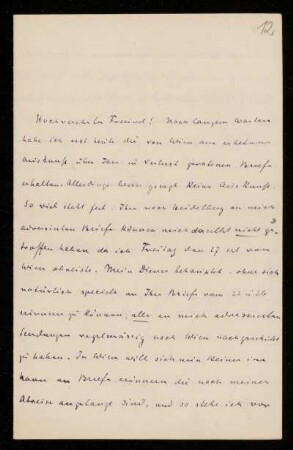 12.
Hochverehrter Freund! Nach langem Warten
habe ich erst heute die von Wien aus erbetene
Auskunft über Ihre in Verlust geratenen Briefe
erhalten. Allerdings besser gesagt keine Auskunft.
So viel steht fest: Ihre nach Heidelberg an mich
adressirten Briefe können mich daselbst nicht ge-
troffen haben da ich Freitag den 27 erst von
Wien abreiste. Mein Diener behauptet – ohne sich
natürlich speciell an Ihre Briefe vom 22 u 26
erinnern zu können, alle an mich adressirten
Sendungen regelmässig nach Wien nachgeschickt
zu haben. In Wien will sich mein Kleiner
kaum an Briefe erinnern die nach meiner
Abreise angelangt sind, und so stehe ich vor